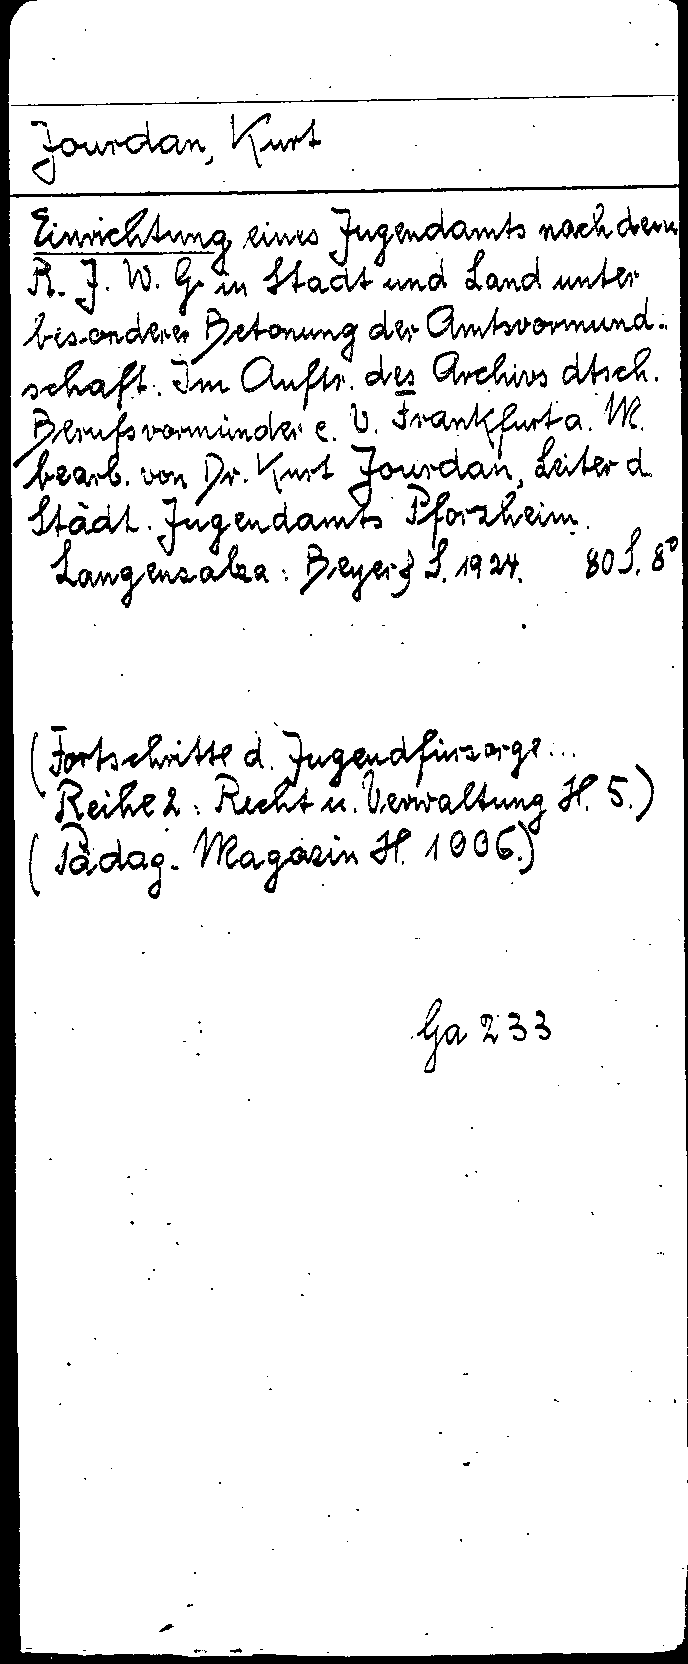 Jourdan, Kurt
Einrichtung eines Jugendamts nach dem
R. J. W. G. in Stadt und Land unter
besonderer Betonung der Amtsvormund-
schaft. Im Auftr. des Archivs dtsch.
Berufsvormünder e. V. Frankfurt a. M.
bearb. von Dr. Kurt Jourdan, Leiter d.
Städt. Jugendamts Pforzheim.
Langensalza: Beyer & S. 1924. 80 S. 8°
(Fortschritte d. Jugendfürsorge...
Reihe 2: Recht u. Verwaltung H. 5.)
(Pädag. Magazin H. 1006.)
Ga 233